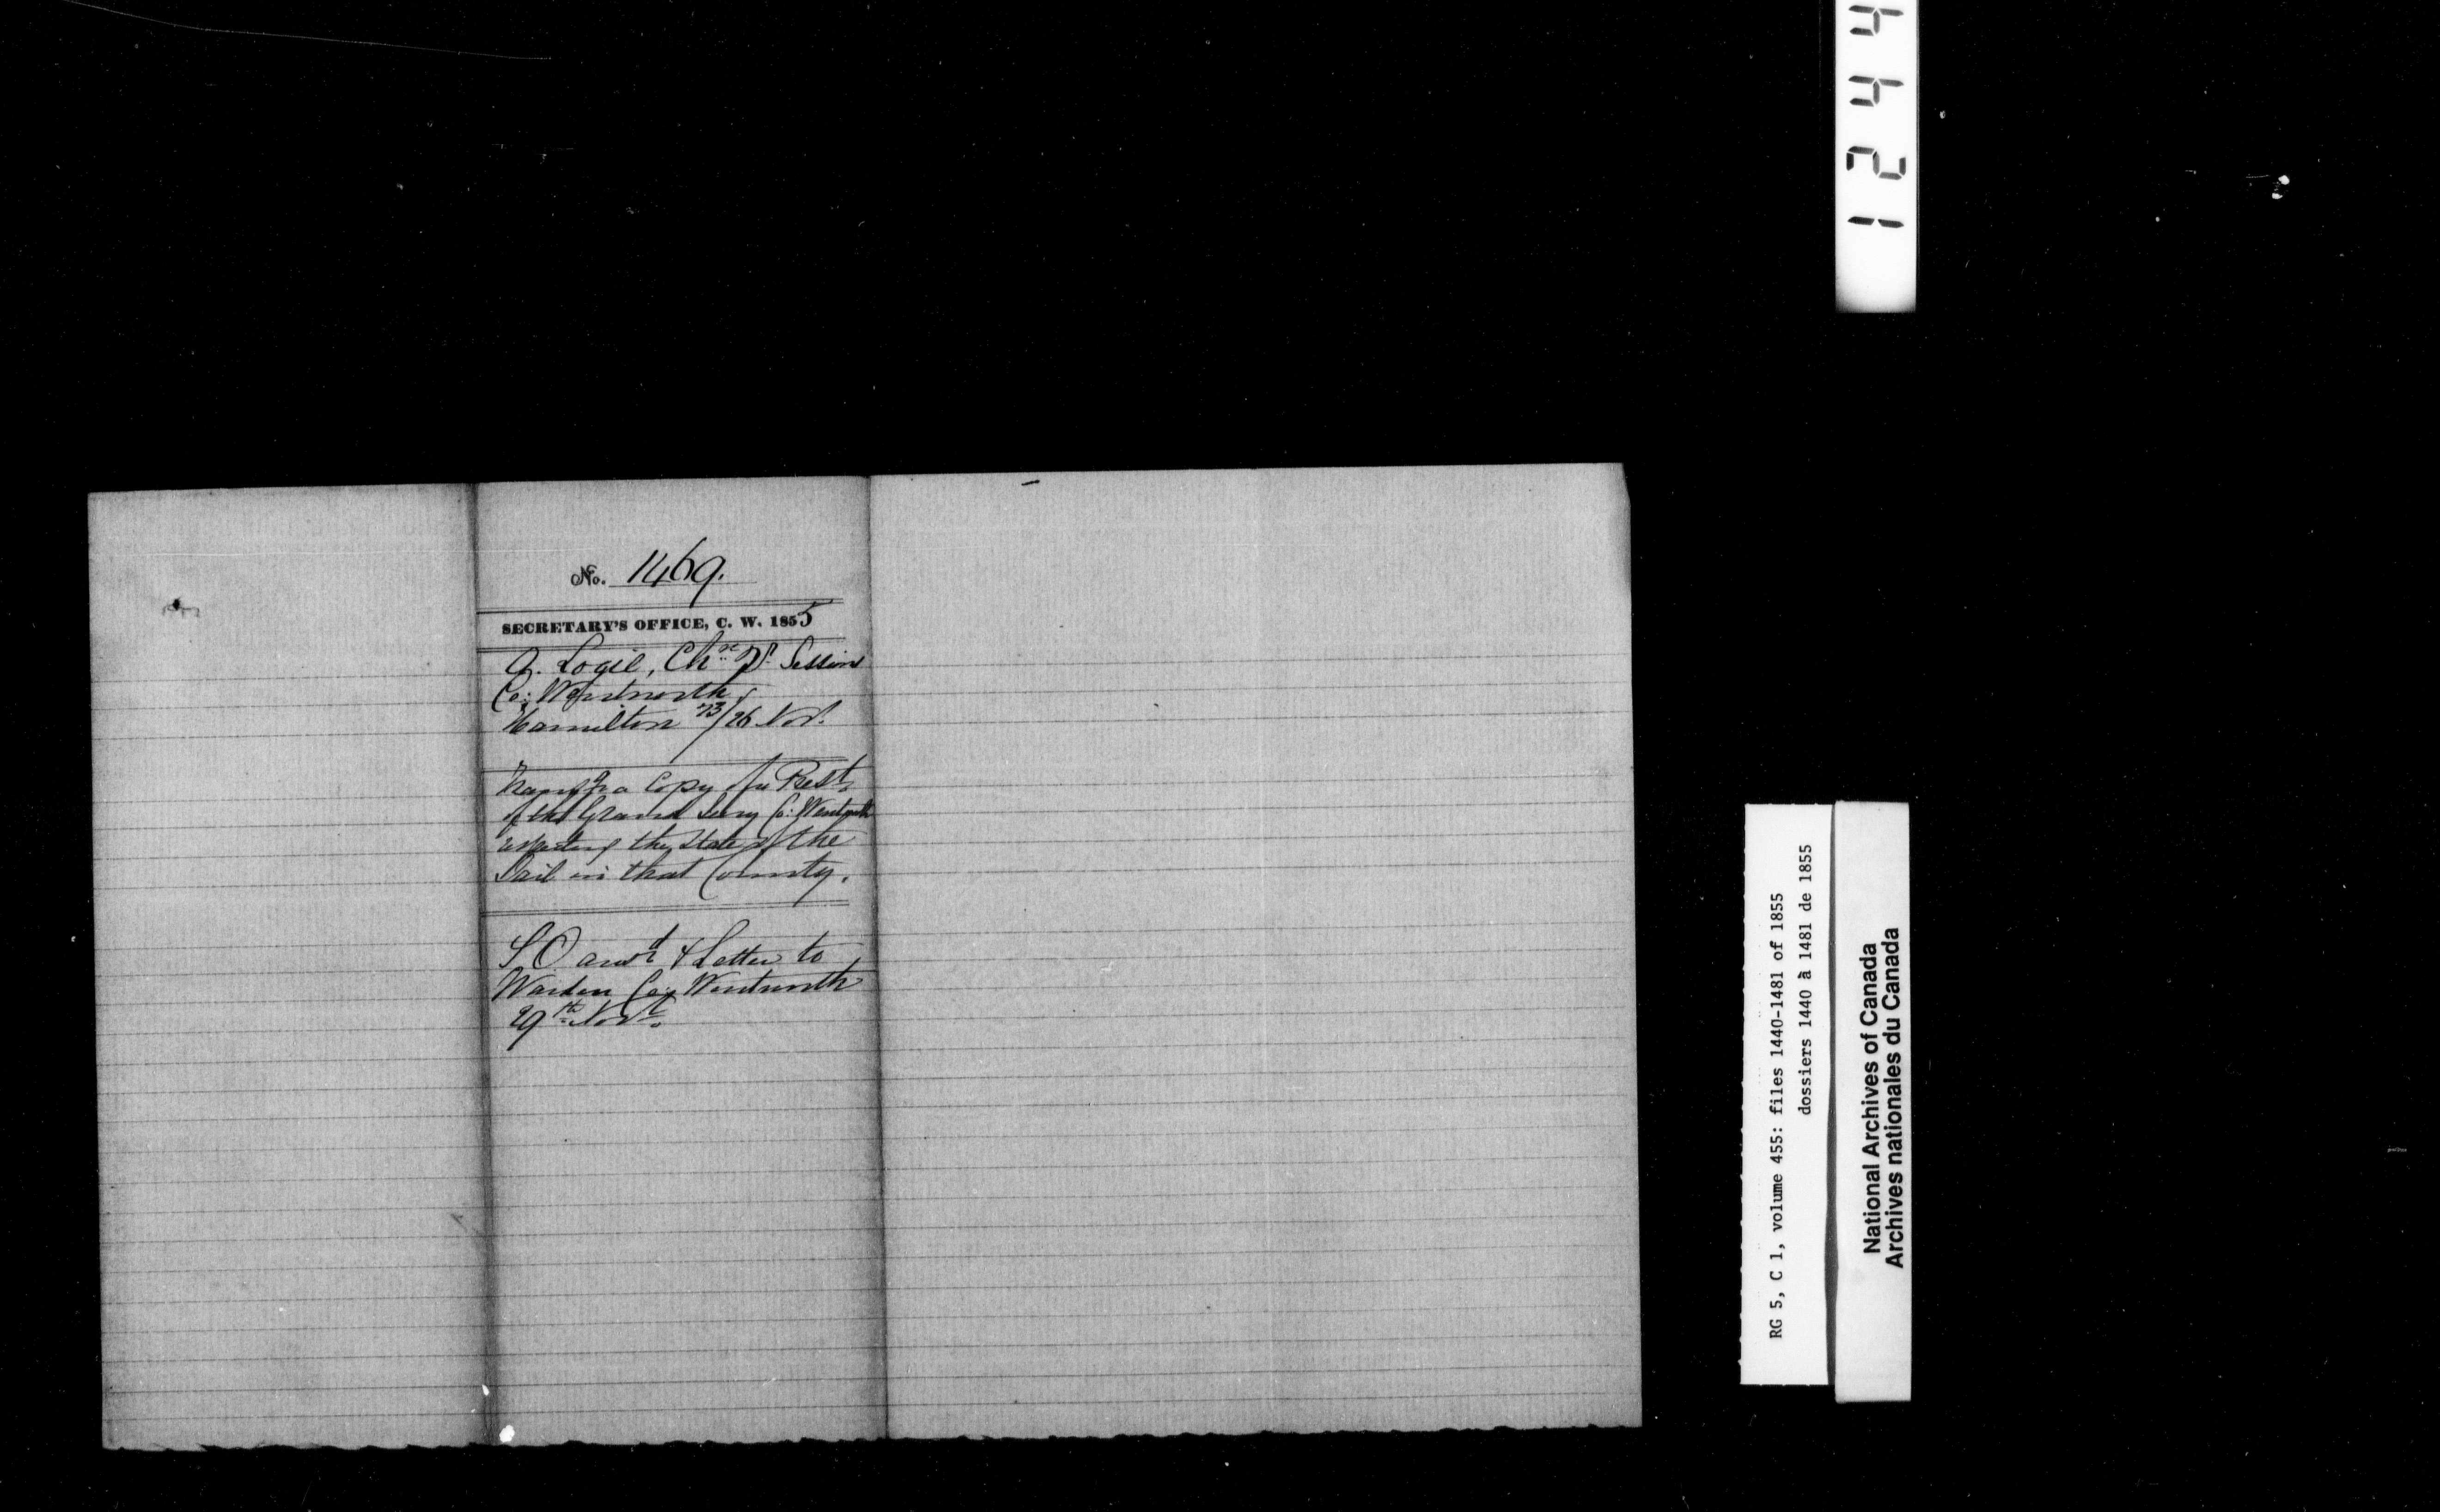 No. 1469.
SECRETARY'S OFFICE, C. W. 1855
A. Logie, Chn. Qr. Sessions
Co: Wentworth
Hamilton 23/26 Novr.
a Copy of a Prest.
of the Grand Jury Co: Wentworth
respecting the State of the
Jail in that County.
answd & Letter to
Warden Co: Wentworth
29th Novr.
1244
RG 5, C 1, volume 455: files 1440-1481 of 1855
dossiers 1440 à 1481 de 1855
National Archives of Canada
Archives nationales du Canada